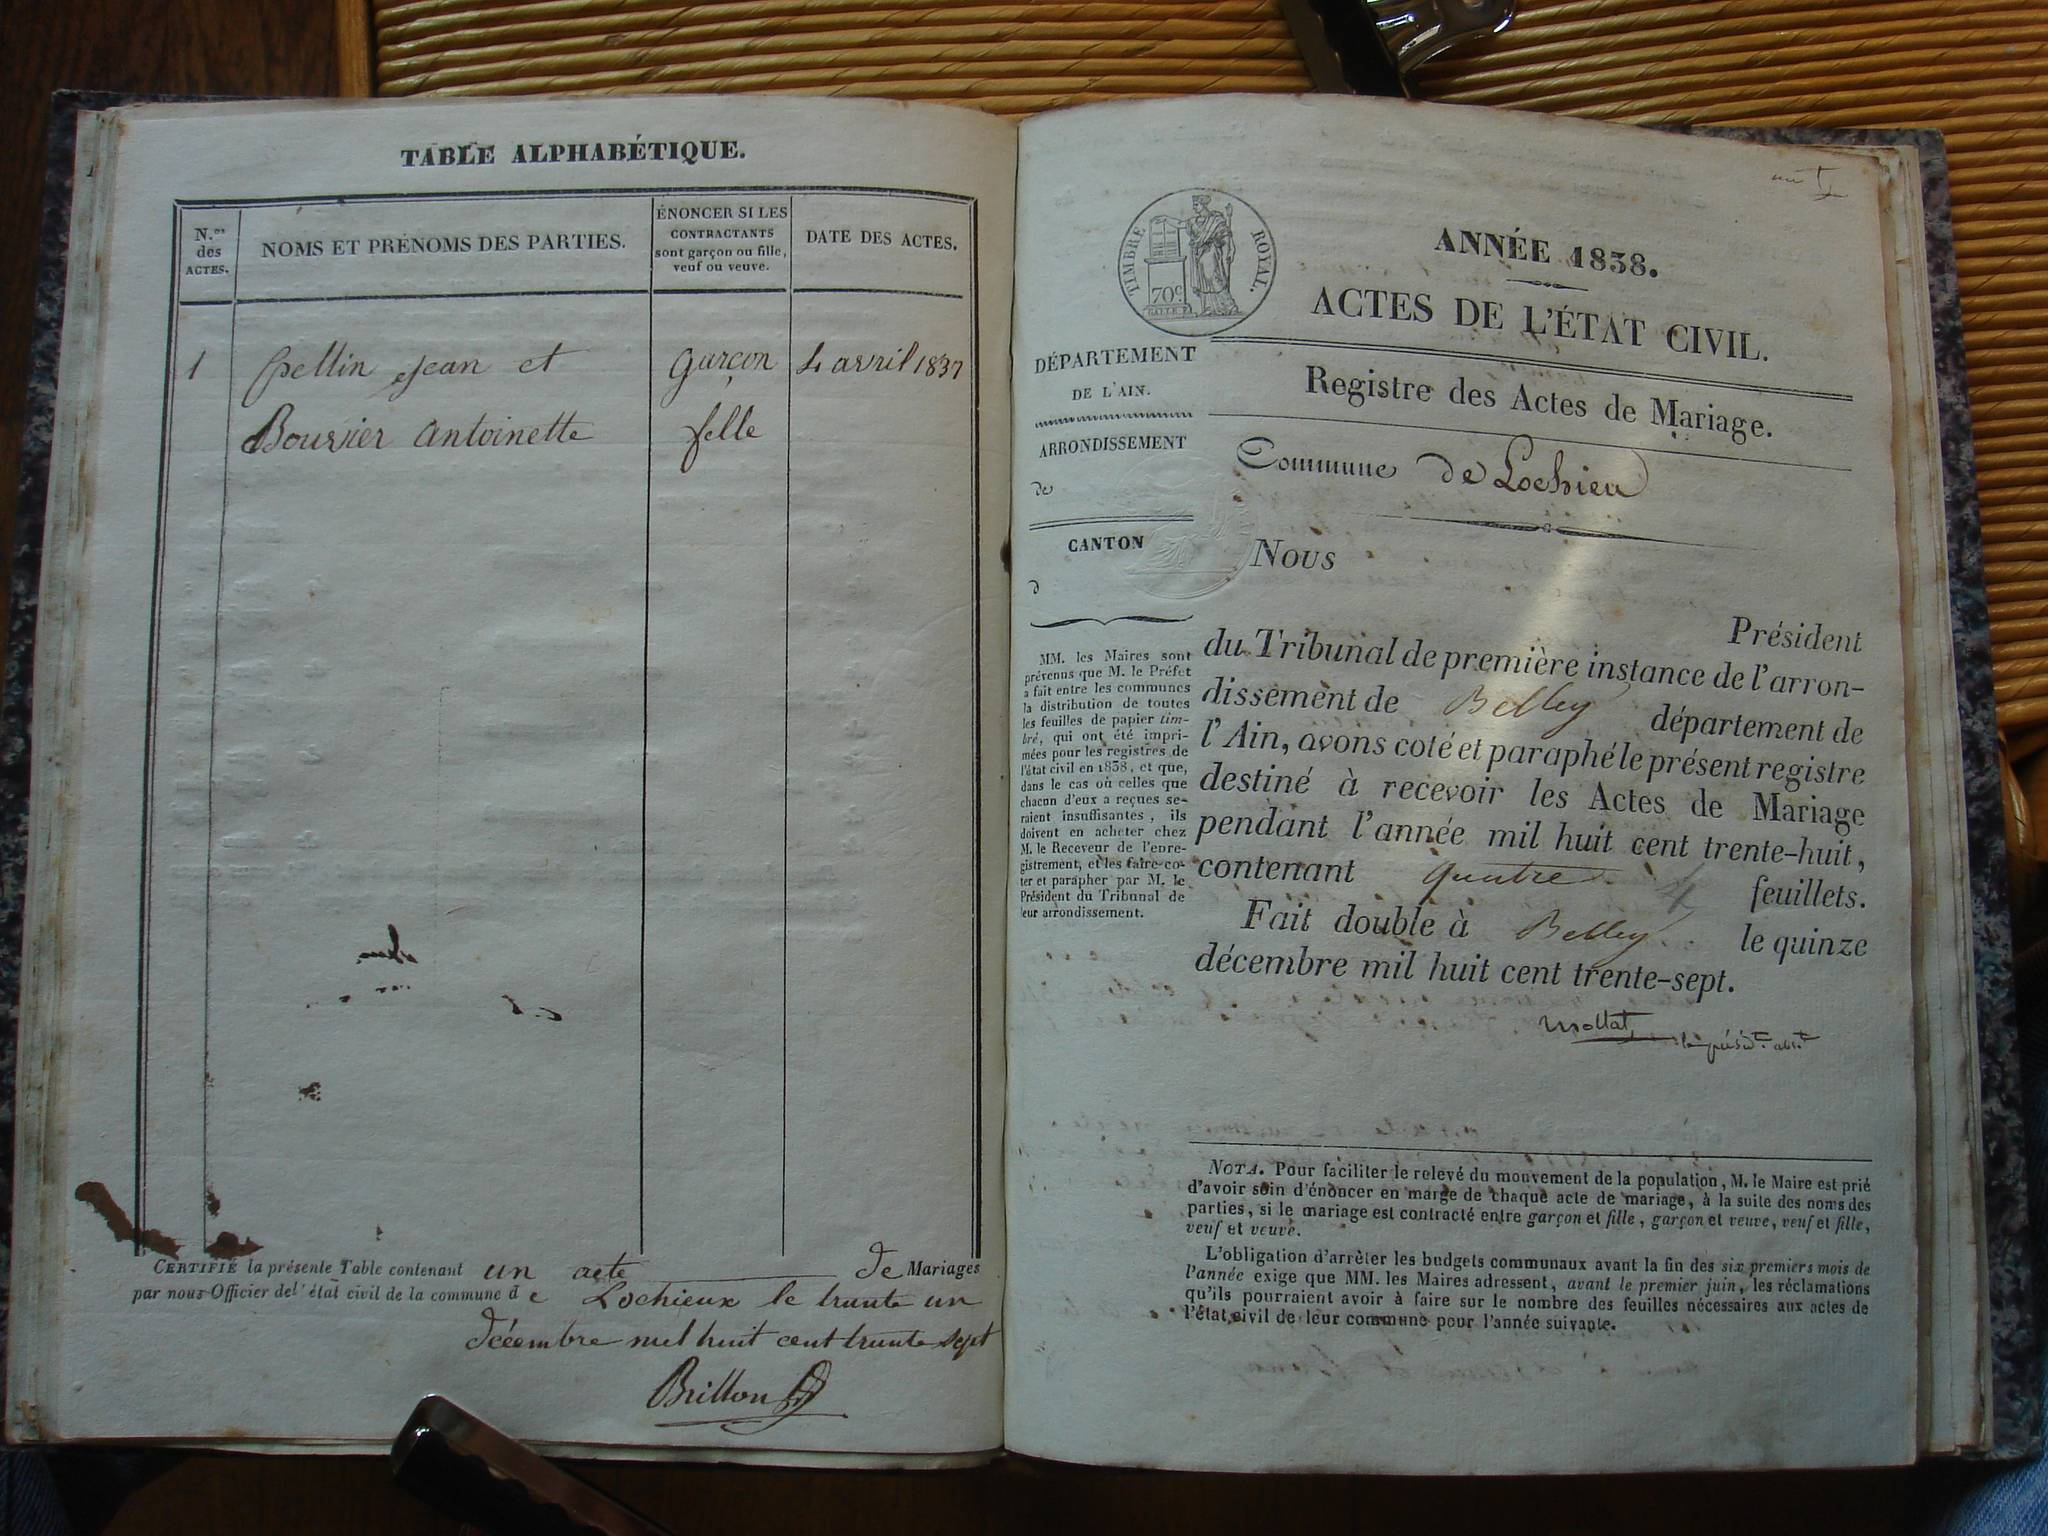 TABLE ALPHABÉTIQUE.
N.os
des
ACTES.
NOMS ET PRÉNOMS DES PARTIES.
ÉNONCER SI LES
CONTRACTANTS
sont garçon ou fille,
veuf ou veuve.
DATE DES ACTES.
1 Pellin Jean et garçon 4 avril 1837
Boursier Antoinette fille
CERTIFIÉ la présente Table contenant un acte de Mariages
par nous Officier de l'état civil de la commune de Lochieux le trente un
décembre mil huit cent trente sept
Brillon
TIMBRE ROYAL.
70c
ANNÉE 1838.
ACTES DE L'ÉTAT CIVIL.
DÉPARTEMENT
DE L'AIN.
ARRONDISSEMENT
de
CANTON
d
Registre des Actes de Mariage.
Commune de Lochieu
MM. les Maires sont
prévenus que M. le Préfet
a fait entre les communes
la distribution de toutes
les feuilles de papier tim-
bré, qui ont été impri-
mées pour les registres de
l'état civil en 1838, et que,
dans le cas où celles que
chacun d'eux a reçues se-
raient insuffisantes, ils
doivent en acheter chez
M. le Receveur de l'enre-
gistrement, et les faire co-
ter et parapher par M. le
Président du Tribunal de
leur arrondissement.
Nous
Président
du Tribunal de première instance de l'arron-
dissement de Belley département de
l'Ain, avons coté et paraphé le présent registre
destiné à recevoir les Actes de Mariage
pendant l'année mil huit cent trente-huit,
contenant quatre feuillets.
Fait double à Belley le quinze
décembre mil huit cent trente-sept.
Mollat,
le présidt. abst
NOTA. Pour faciliter le relevé du mouvement de la population, M. le Maire est prié
d'avoir soin d'énoncer en marge de chaque acte de mariage, à la suite des noms des
parties, si le mariage est contracté entre garçon et fille, garçon et veuve, veuf et fille,
veuf et veuve.
L'obligation d'arrêter les budgets communaux avant la fin des six premiers mois de
l'année exige que MM. les Maires adressent, avant le premier juin, les réclamations
qu'ils pourraient avoir à faire sur le nombre des feuilles nécessaires aux actes de
l'état civil de leur commune pour l'année suivante.